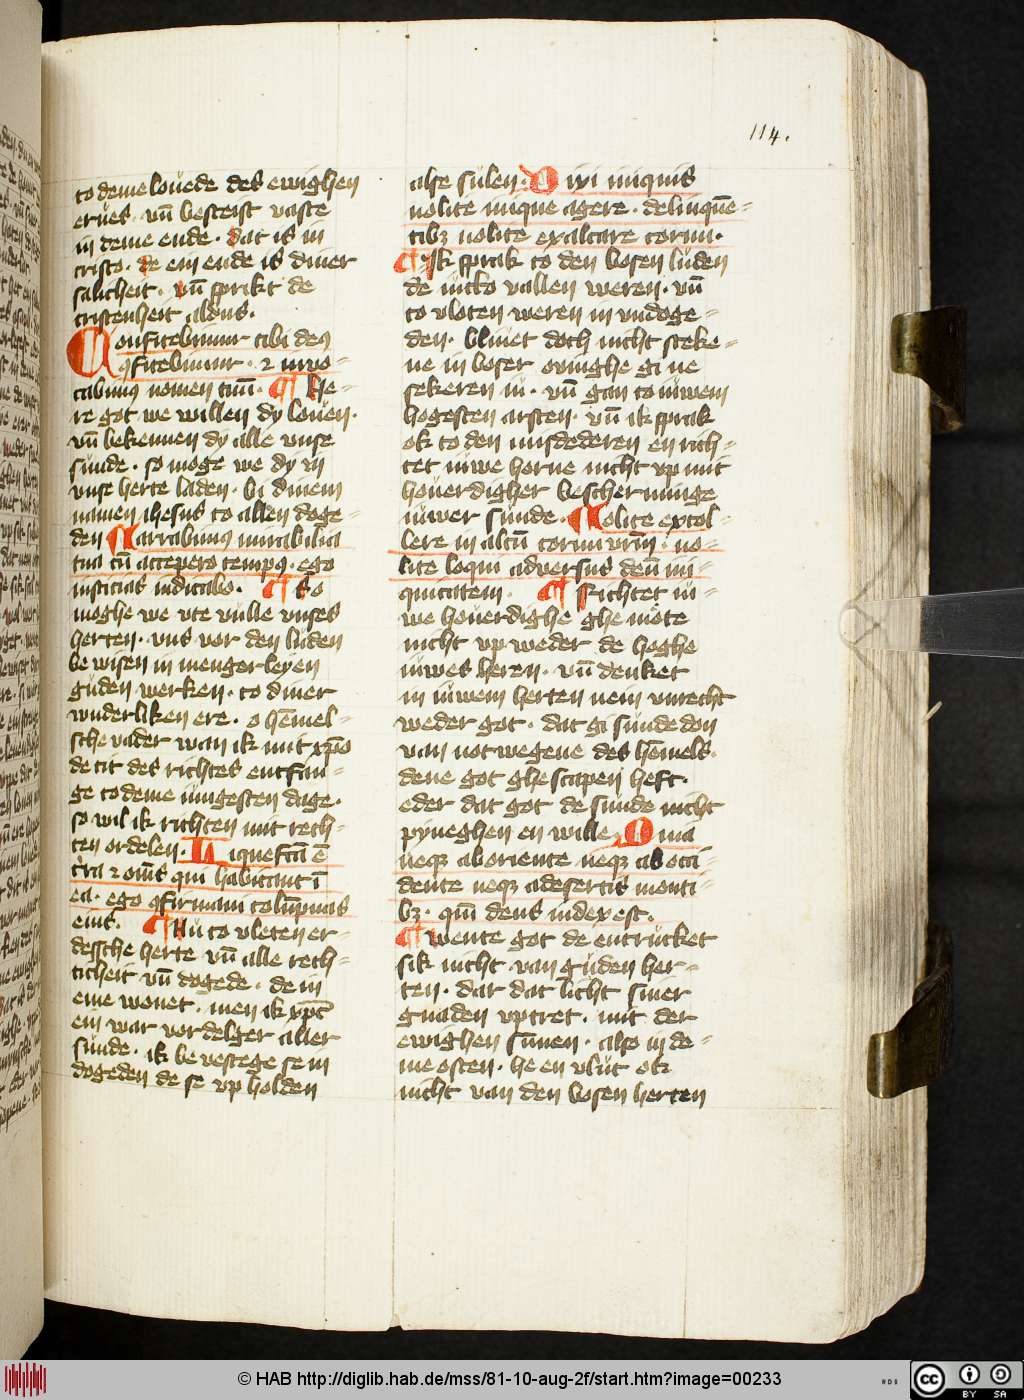 114.
to deme louede des ewighen
erues · vn̄ besteist vaste
in deme ende · dat is in
cristo · de ein ende is diner
salicheit · vn̄ sprikt de
cristenheit aldus ·
Confitebimur tibi deꝯ
ꝯfitebimur · ⁊ invo⸗
cabimꝯ nomen tuū · ¶ He⸗
re got we willen dy louen ·
vn̄ bekennen dy alle vnse
sunde · so moge we dy in
vnse herte laden · bi dinem
namen ihesus to allen doge⸗
den Narrabimꝯ mirabilia
tua cū accepero tempꝯ · ego
iusticias iudicabo · ¶ So
moghe we vte vulle vnses
herten · vns vor den luden
be wisen in mengerleyen
guden werken · to diner
wnderliken ere · o hemel⸗
sche vader wan ik mit xp̄o
de tit des richtes entfan⸗
ge to deme iungesten dage ·
so wil ik richten mit rech⸗
ten ordelen · Liquefcā ē
t̄ra ⁊ om̄s qui habitant ī
ea · ego ꝯfirmaui colūpnas
eius · ¶ Nu to vleten er⸗
dessche herte vn̄ alle rech⸗
ticheit vn̄ dogede · de in
eme wonet · men ik xp̄c
ein war vordelger aller
sunde · ik be vestege se in
dogeden de se vp holden
alse sulen · Dixi iniquis
nolite inique agere · delinquē⸗
tibꝫ nolite exaltare cornu ·
¶ Ik sprak to den bosen luden
de in to vallen weren · vn̄
to vloten weren in vndoge⸗
den · bliuet doch nicht steke⸗
ne in boser ouinghe gi ne
sekeren iu · vn̄ gan to iuwem
hogesten arsten · vn̄ ik sprak
ok to den misdederen en rich⸗
tet iuwe horne nicht vp mit
houerdigher bescherminge
iuwer sunde · Nolite extol⸗
lere in altū cornu vrm̄ · no⸗
lite loqui adversus deū ini⸗
quitatem · ¶ Richtet iu⸗
we houerdighe ghemote
nicht vp weder de hoghe
iuwes heren · vn̄ denket
in iuwem herten nein vnrecht
weder got · dat gi sunde don
van not wegene des hemels ·
dene got ghescapen heft ·
eder dat got de sunde nicht
pyneghen en wille · Quia
neqꝫ ab oriente neqꝫ ab occi⸗
dente neqꝫ a desertis monti⸗
bꝫ · qm̄ deus iudex est ·
¶ Wente got de entrucket
sik nicht van guden her⸗
ten · dar dat licht siner
gnaden vptret · mit der
ewighen sunnen · also in de⸗
me osten · he en vlut ok
nicht van den bosen herten
© HAB http://diglib.hab.de/mss/81-10-aug-2f/start.htm?image=00233
CC BY SA